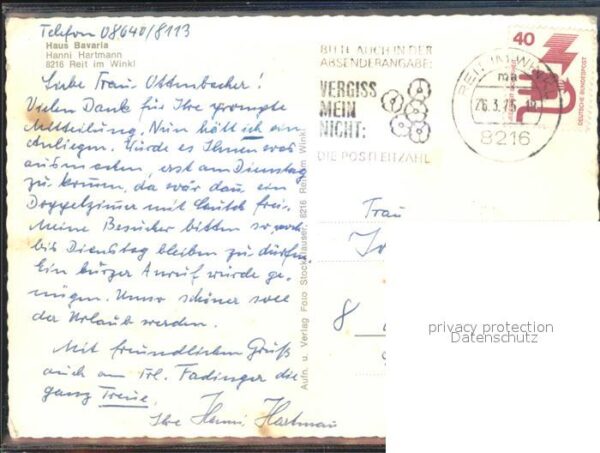 Telefon 08640/8113
Haus Bavaria
Hanni Hartmann
8216 Reit im Winkl
Liebe Frau Ottenbacher!
Vielen Dank für Ihre prompte
Mitteilung. Nun hätt ich ein
Anliegen. Würde es Ihnen was
ausmachen, erst am Dienstag
zu kommen, da wär dann ein
Doppelzimmer mit frei.
Meine Besucher bitten so, noch
bis Dienstag bleiben zu dürfen.
Ein kurzer Anruf würde ge-
nügen. Umso schöner soll
der Urlaub werden.
Mit freundlichem Gruß
auch an Frl. Fadinger die
ganz Treue.
Ihre Hanni Hartmann
Aufn. u. Verlag Foto Stockklauser, 8216 Reit im Winkl
BITTE AUCH IN DER
ABSENDERANGABE:
VERGISS
MEIN
NICHT:
DIE POSTLEITZAHL
REIT IM WINKL
26.3.75
8216
40
DEUTSCHE BUNDESPOST
Frau
8
privacy protection
Datenschutz